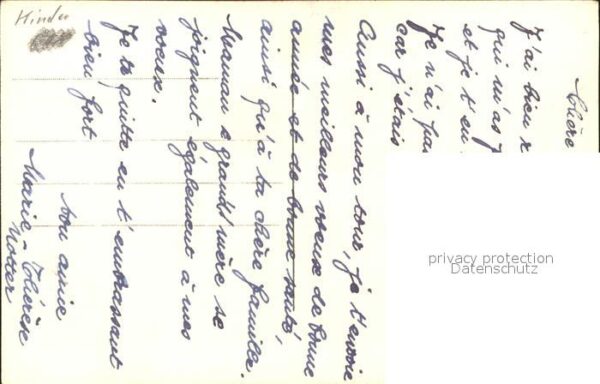 Kinder
Chère
J'ai bien r
qui m'as f
et je t'en
Je n'ai pas
car j'étais
Aussi à mon tour, je t'envoie
mes meilleurs voeux de bonne
année et de bonne santé,
ainsi qu'à ta chère famille.
Maman & grand'mère se
joignent également à mes
voeux.
Je te quitte en t'embrassant
bien fort
ton amie
Marie-Thérèse
privacy protection
Datenschutz